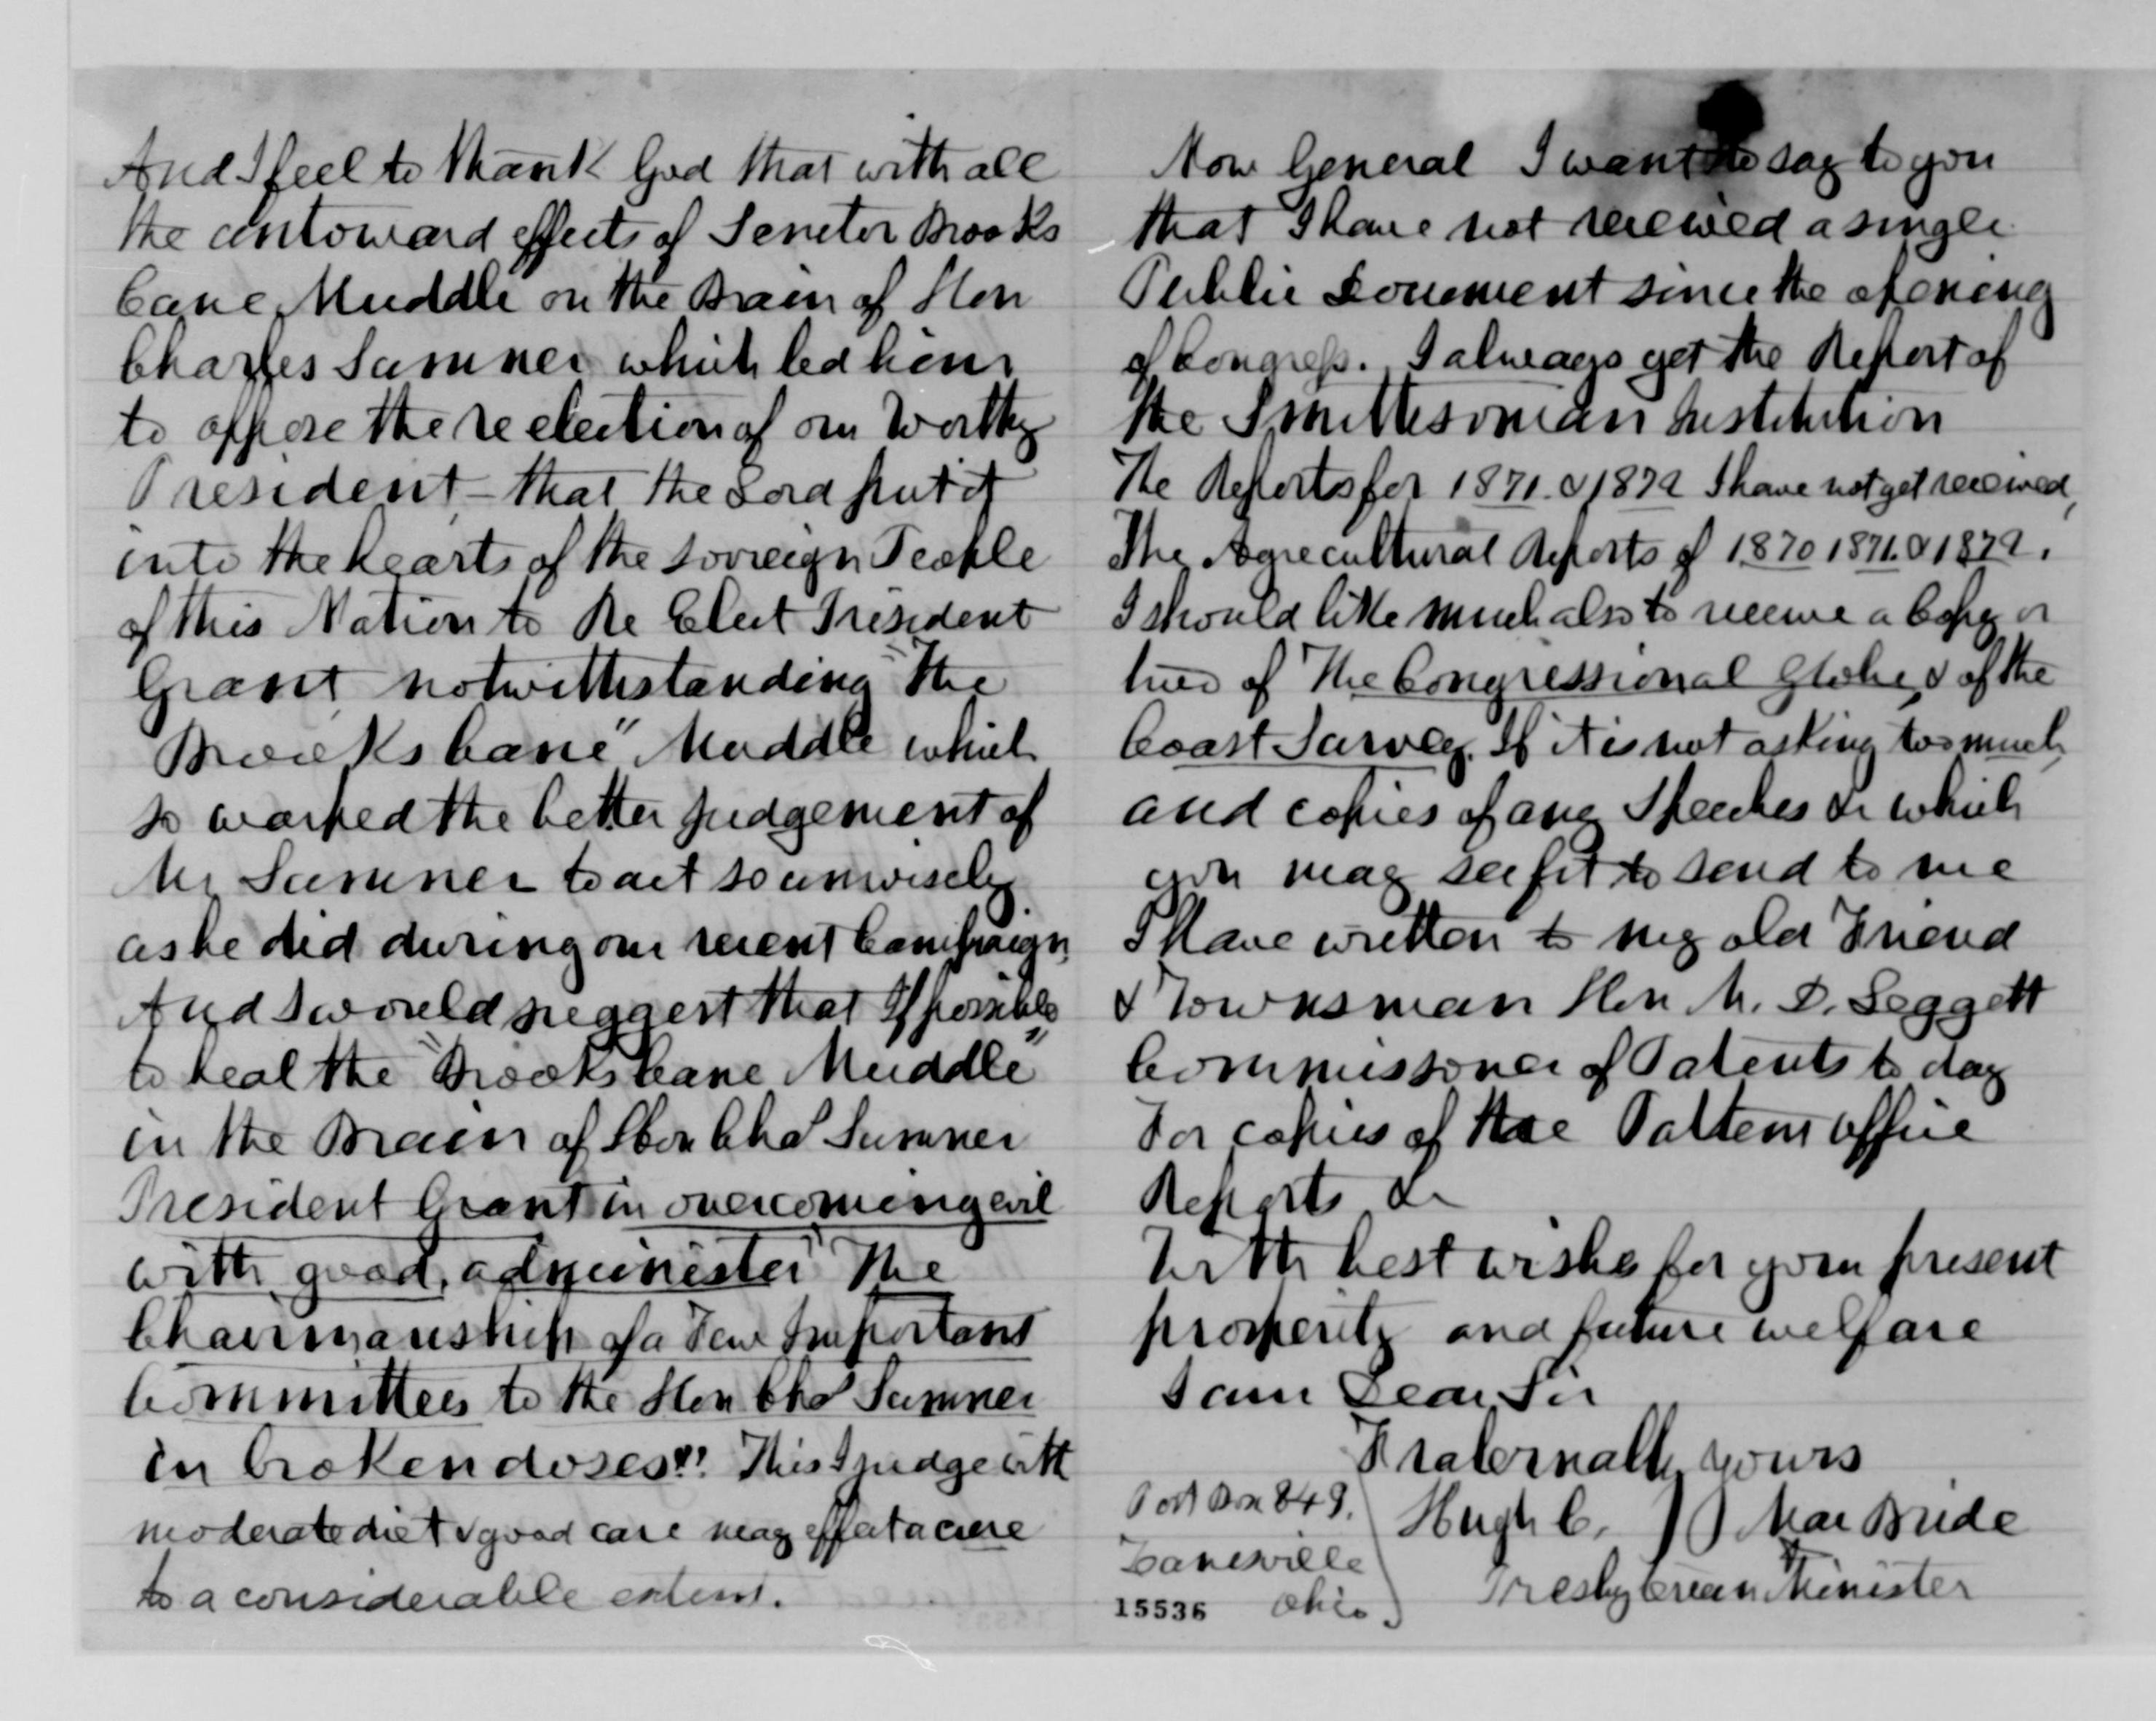 And I feel to thank God that with all
the untoward effects of Senetor Brooks
Cane Muddle on the Brain of Hon
Charles Sumner which led him
to oppose the reelection of our Worthy
President - that the Lord put it
into the hearts of the sovreign People
of this Nation to Re Elect President
Grant notwithstanding "The
Brooks Cane" Muddle which
so warped the better judgement of
Mr Sumner to act so unwisely
as he did during our recent Campaign.
And I would suggest that If possible
to heal the "Brooks Cane Muddle"
in the Brain of Hon Chas Sumner
President Grant in overcoming evil
with good, administer "The
Chairmanship of a Few Important
Committees to the Hon Chas Sumner
in broken doses"! This I judge with
moderate diet & good care may effect a cure
to a considerable extent.
Now General I want to say to you
that I have not received a single
Public Document since the opening
of Congress. I always get the Report of
the Smithsonian Institution
The Reports for 1871. & 1872 I have not yet received,
The Agrecultural Reports of 1870 1871. & 1872.
I should like much also to receive a Copy or
two of The Congressional Globe, & of the
Coast Survey. If it is not asking too much,
and copies of any Speeches &c which
you may see fit to send to me
I have written to my old Friend
& Townsman Hon M. D. Leggett
Commissoner of Patents to day
For copies of the Pattent office
Reports &c
With best wishes for your present
prosperity and future welfare
I am Dear Sir
Fraternally yours
Post Box 849. Hugh C. Mac Bride
Zanesville Presbyterean Minister
15536 Ohio